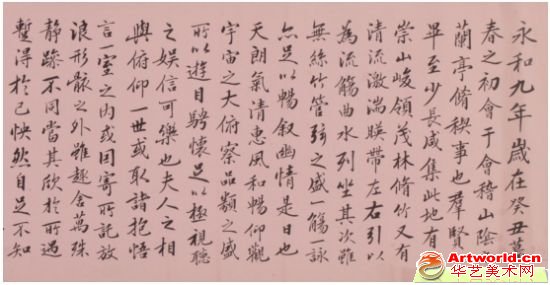 永和九年歲在癸丑暮
春之初會于會稽山陰
蘭亭脩稧事也群賢
畢至少長咸集此地有
崇山峻領茂林脩竹又有
清流激湍暎帶左右引以
為流觴曲水列坐其次雖
無絲竹管弦之盛一觴一詠
亦足以暢敘幽情是日也
天朗氣清惠風和暢仰觀
宇宙之大俯察品類之盛
所以遊目騁懷足以極視聽
之娛信可樂也夫人之相
與俯仰一世或取諸抱悟
言一室之內或因寄所託放
浪形骸之外雖趣舍萬殊
靜躁不同當其欣於所遇
蹔得於己怏然自足不知
Artworld.cn
华艺美术网